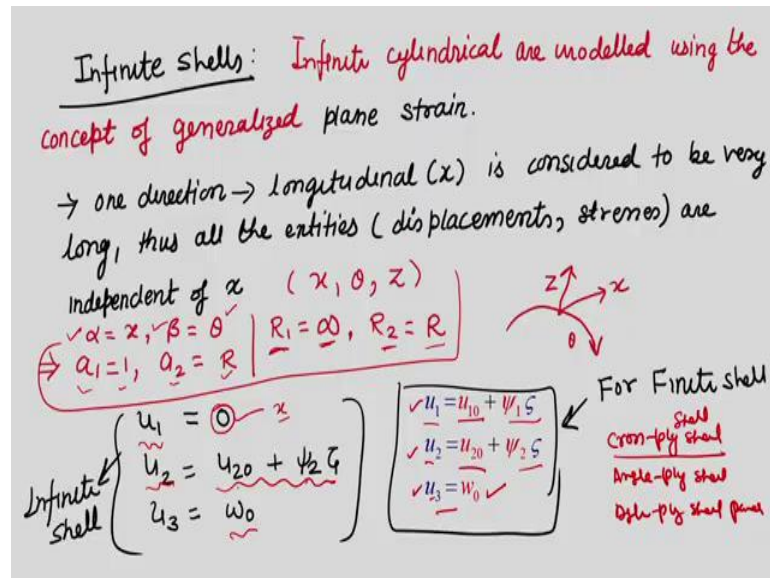 Infinite shells: Infinite cylindrical are modelled using the
concept of generalized plane strain.
→ one direction → longitudinal (x) is considered to be very
long, thus all the entities (displacements, stresses) are
independent of x (x, θ, z)
✓α = x, ✓β = θ✓ | R₁ = ∞, R₂ = R
⇒ a₁ = 1, a₂ = R
z x
θ
u₁ = 0 — x
u₂ = u₂₀ + ψ₂ ζ
u₃ = w₀
Infinite
shell
✓u₁ = u₁₀ + ψ₁ ς
✓u₂ = u₂₀ + ψ₂ ς
✓u₃ = w₀ ✓
For Finite shell
shell
Cross-ply
Angle-ply shell